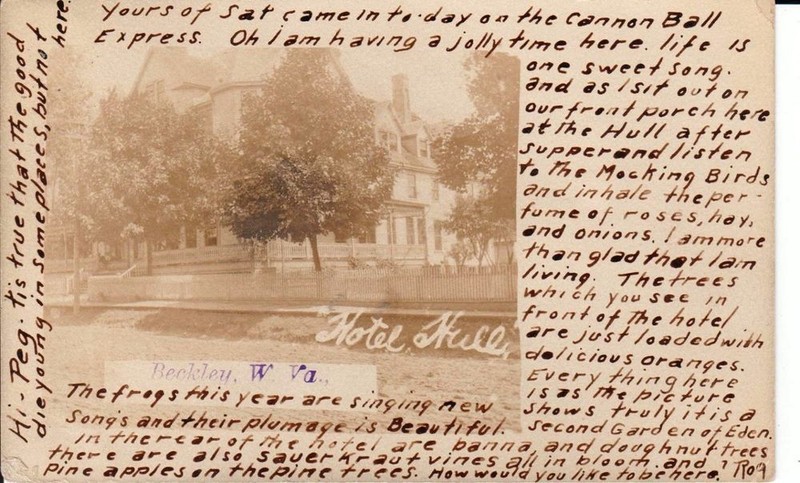 Yours of Sat came in to-day on the Cannon Ball
Express. Oh I am having a jolly time here. life is
one sweet song.
and as I sit out on
our front porch here
at the Hull after
supper and listen
to the Mocking Birds
and inhale the per-
fume of roses, hay,
and onions. I am more
than glad that I am
living. The trees
which you see in
front of the hotel
are just loaded with
delicious oranges.
Every thing here
is as the picture
shows truly it is a
second Garden of Eden.
The frogs this year are singing new
songs and their plumage is Beautiful.
in the rear of the hotel are banna, and doughnut trees
there are also sauer kraut vines all in bloom. and
pine apples on the pine trees. How would you like to be here?
Hi-Peg. tis true that the good
die young in some places, but not
here.
"Hotel Hull,"
Beckley, W. Va.,